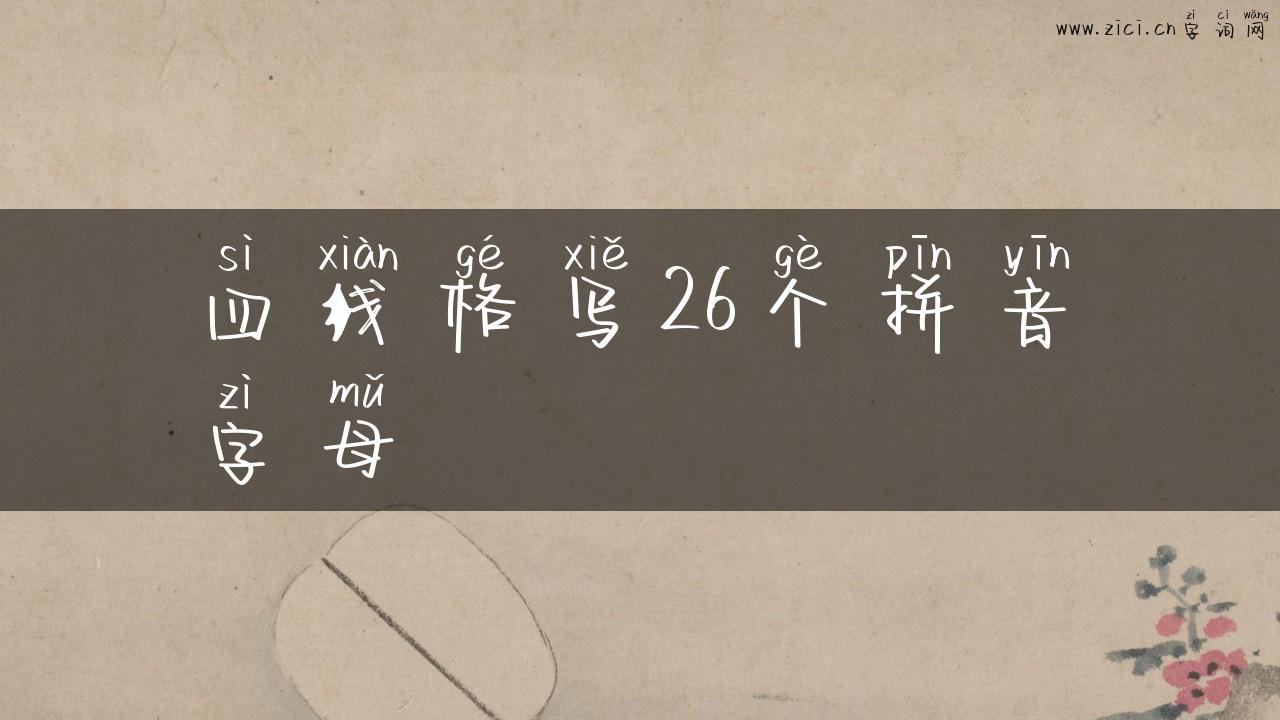 zì cí wǎng
www.zici.cn字词网
sì xiàn gé xiě gè pīn yīn
四线格写26个拼音
zì mǔ
字母